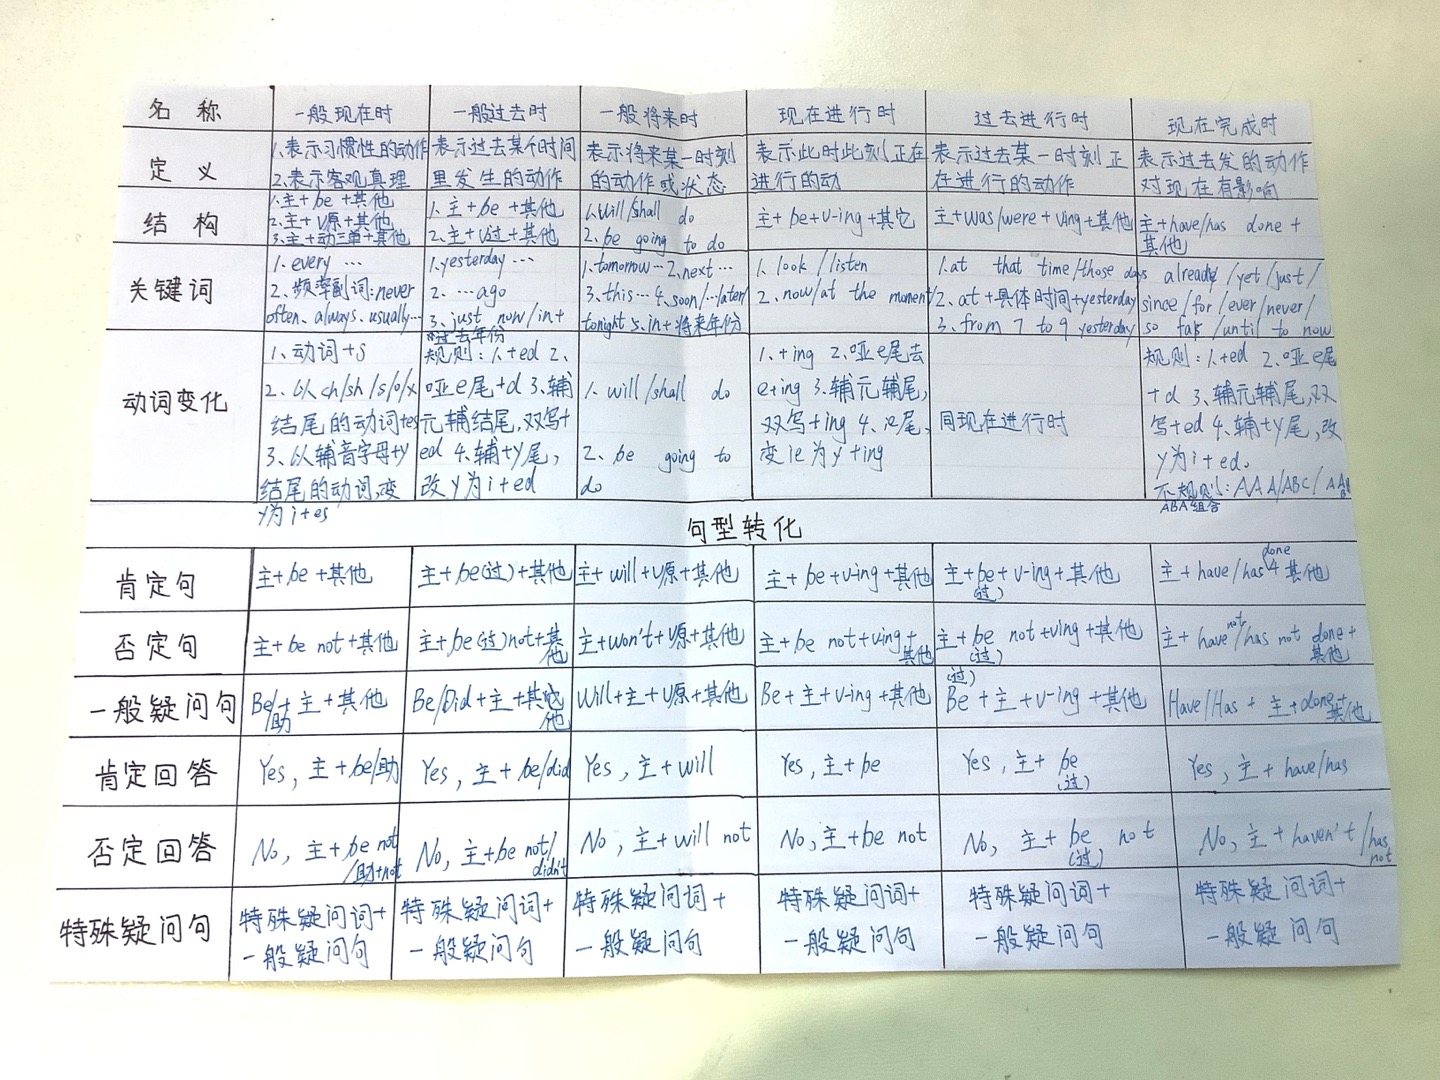 名 称 一般现在时 一般过去时 一般将来时 现在进行时 过去进行时 现在完成时
定 义
1、表示习惯性的动作
2、表示客观真理
表示过去某个时间
里发生的动作
表示将来某一时刻
的动作或状态
表示此时此刻正在
进行的动
表示过去某一时刻正
在进行的动作
表示过去发的动作
对现在有影响
结 构
1.主+be +其他
2.主+v原+其他
3.主+动三单+其他
1.主+be +其他
2.主+v过+其他
1.will/shall do
2.be going to do
主+be+v-ing+其它
主+was/were+ving+其他
主+have/has done +
其他
关键词
1.every …
2、频率副词:never
often、always、usually…
1.yesterday …
2. …ago
3、just now/in+
过去年份
1.tomorrow… 2.next…
3.this… 4.soon/…later/
tonight 5.in+将来年份
1. look /listen
2.now/at the moment/
1.at that time/those days
2、at+具体时间+yesterday
3、from 7 to 9 yesterday
already/yet/just/
since/for/ever/never/
so far/until to now
动词变化
1、动词+s
2、以ch/sh/s/o/x
结尾的动词+es
3、以辅音字母+y
结尾的动词,变
y为i+es
规则:1.+ed 2、
哑e尾+d 3、辅
元辅结尾,双写+
ed 4、辅+y尾,
改y为i+ed
1. will/shall do
2. be going to
do
1、+ing 2、哑e尾去
e+ing 3、辅元辅尾,
双写+ing 4、ie尾,
变ie为y+ing
同现在进行时
规则:1.+ed 2、哑e尾
+d 3、辅元辅尾,双
写+ed 4、辅+y尾,改
y为i+ed。
不规则:AAA/ABC/ABB
ABA组合
句型转化
肯定句 主+be+其他 主+be(过)+其他 主+will+v原+其他 主+be+v-ing+其他 主+be(过)+v-ing+其他 主+have/has done+其他
否定句 主+be not+其他 主+be(过)not+其他 主+won't+v原+其他 主+be not+ving+其他 主+be(过) not+ving+其他 主+have not/has not done+其他
一般疑问句 Be/助+主+其他 Be/Did+主+其他 Will+主+v原+其他 Be+主+v-ing+其他 Be(过)+主+v-ing+其他 Have/Has+主+done+其他
肯定回答 Yes,主+be/助 Yes,主+be/did Yes,主+will Yes,主+be Yes,主+be(过) Yes,主+have/has
否定回答 No,主+be not/助+not No,主+be not/didn't No,主+will not No,主+be not No,主+be(过) not No,主+haven't/has not
特殊疑问句
特殊疑问词+
一般疑问句
特殊疑问词+
一般疑问句
特殊疑问词+
一般疑问句
特殊疑问词+
一般疑问句
特殊疑问词+
一般疑问句
特殊疑问词+
一般疑问句